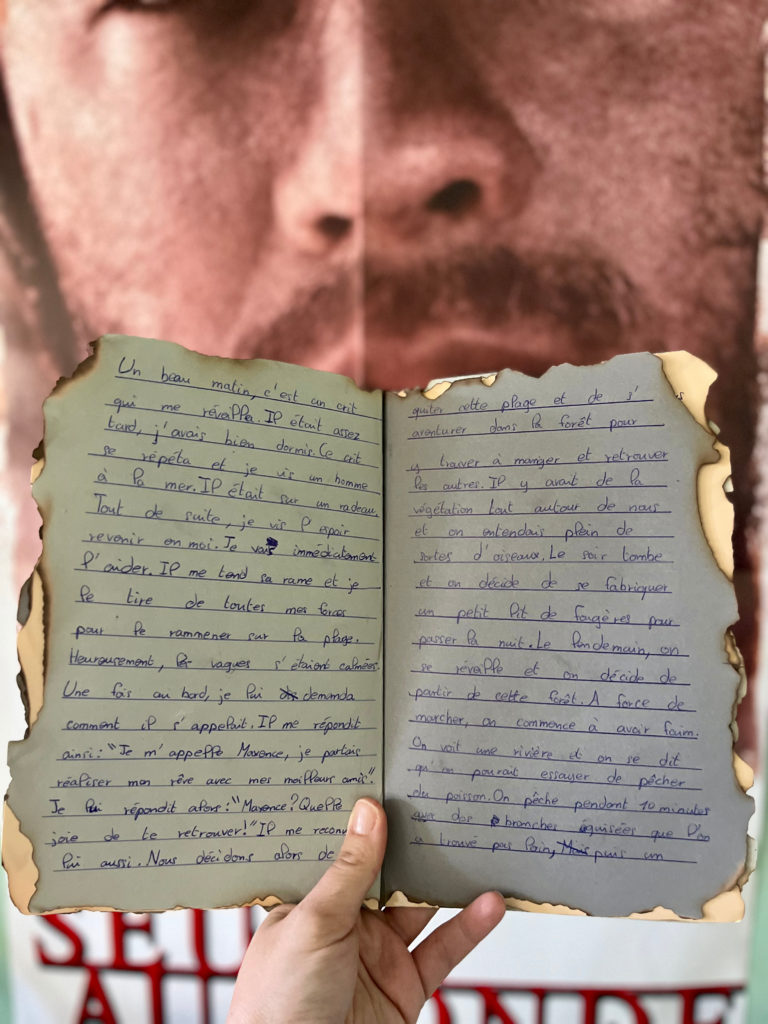 Un beau matin, c'est un crit
qui me réveille. Il était assez
tard, j'avais bien dormis. Ce crit
se répéta et je vis un homme
à la mer. Il était sur un radeau.
Tout de suite, je vis l'espoir
revenir en moi. Je vais immédiatement
l'aider. Il me tend sa rame et je
le tire de toutes mes forces
pour le rammener sur la plage.
Heureusement, les vagues s'étaient calmées.
Une fois au bord, je lui demanda
comment il s'appelait. Il me répondit
ainsi: "Je m'appelle Maxence, je partais
réaliser mon rêve avec mes meilleurs amis".
Je lui répondit alors: "Maxence? Quelle
joie de te retrouver!" Il me reconu
lui aussi. Nous décidons alors de
quiter cette plage et de s'
aventurer dans la forêt pour
y trouver à manger et retrouver
les autres. Il y avait de la
végétation tout autour de nous
et on entendais plein de
sortes d'oiseaux. Le soir tombe
et on décide de se fabriquer
un petit lit de fougères pour
passer la nuit. Le lendemain, on
se réveille et on décide de
partir de cette forêt. A force de
marcher, on commence à avoir faim.
On voit une rivière et on se dit
qu'on pourait essayer de pêcher
du poisson. On pêche pendant 10 minutes
avec des branches éguisées que l'on
a trouvé pas loin, puis un
SEUL
AU MONDE